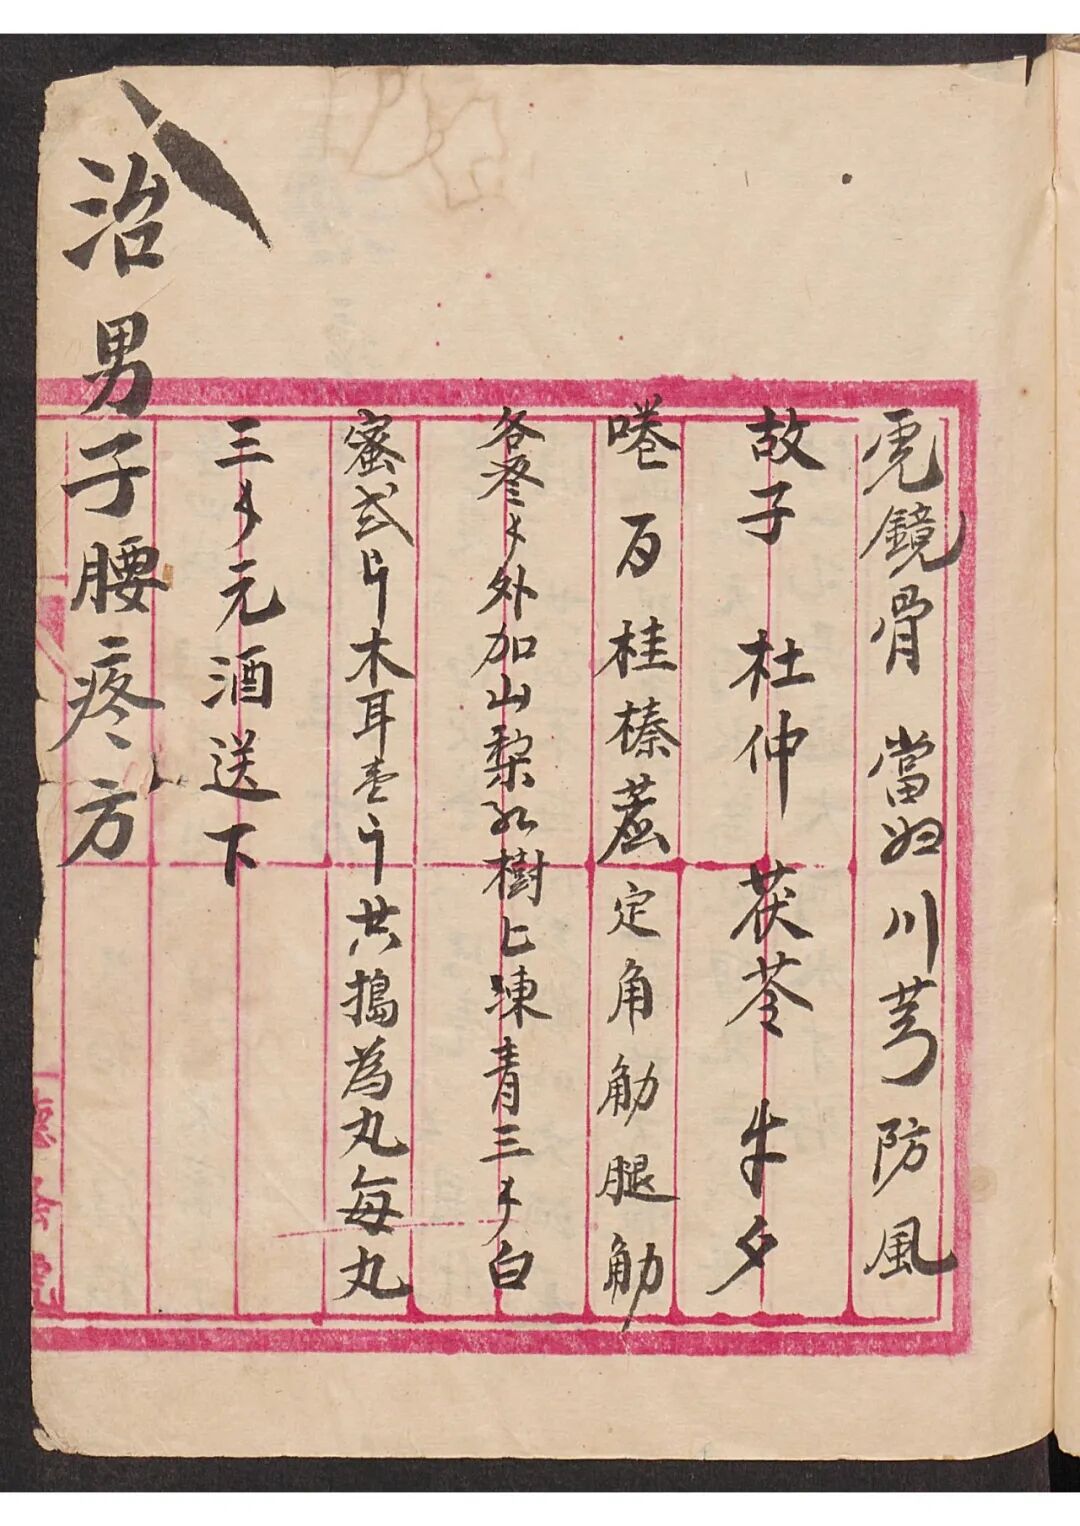 虎鏡骨 當归 川芎 防風
故子 杜仲 茯苓 牛夕
百 桂榛 定角觔腿觔
各叁𠂭外加山梨紅樹上凍青三𠂭白
蜜弍斤木耳壹斤共搗為丸每丸
三𠂭元酒送下
治男子腰疼方